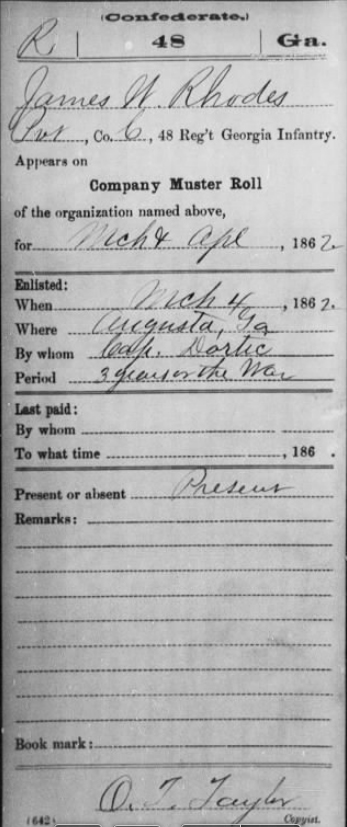 (Confederate.)
R | 48 | Ga.
James W. Rhodes
Pvt, Co. C, 48 Reg't Georgia Infantry.
Appears on
Company Muster Roll
of the organization named above,
for Mch & Apl, 1862.
Enlisted:
When Mch 4, 1862.
Where Augusta, Ga
By whom Cap. Dortic
Period 3 years or the War
Last paid:
By whom
To what time , 186 .
Present or absent Present
Remarks:
Book mark:
O. T. Taylor
(642) Copyist.